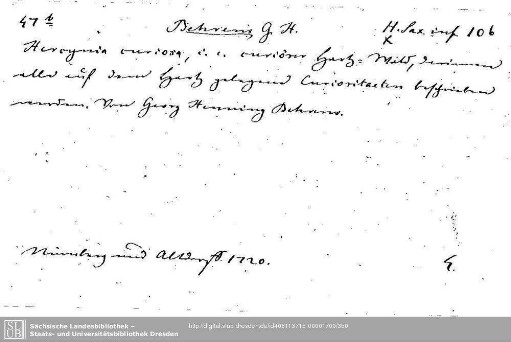 47 b Behrens G. H. H. Sax. inf 106
x
Hercynia curiosa, i. e. curiöser Hartz-Wald, darinnen
alle auf dem Hartz gelegene Curiositaeten beschrieben
werden. Von Georg Henning Behrens.
Nürnberg und Altdorff. 1720.
Sächsische Landesbibliothek –
Staats- und Universitätsbibliothek Dresden